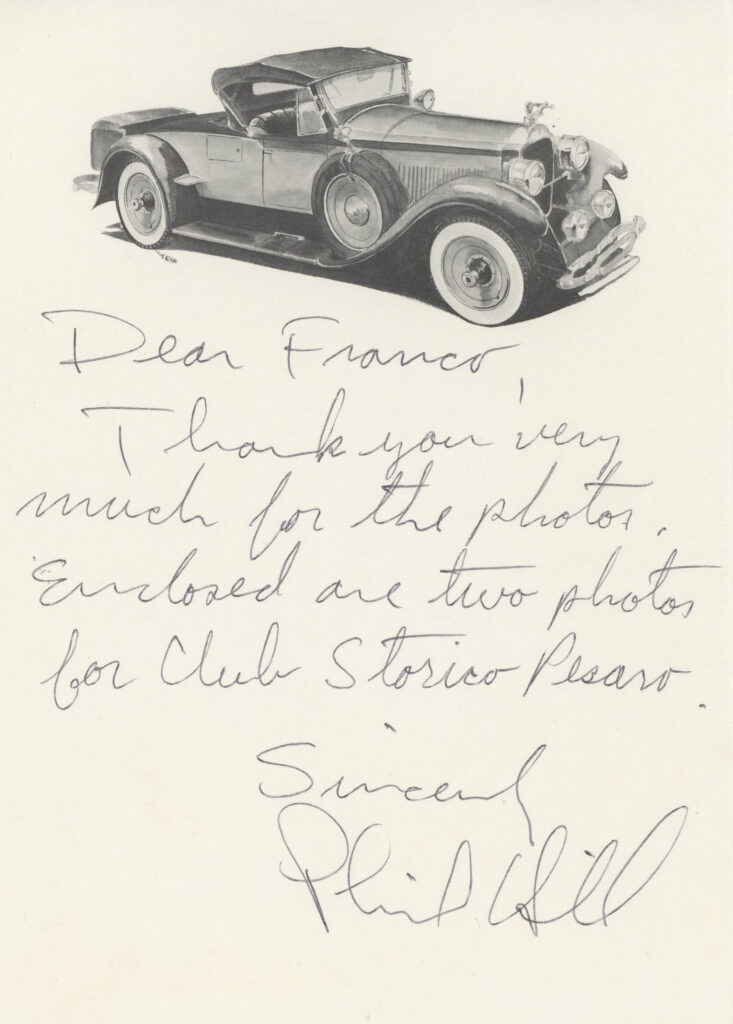 Dear Franco,
Thank you very
much for the photos.
Enclosed are two photos
for Club Storico Pesaro.
Sincerely
Phil Hill